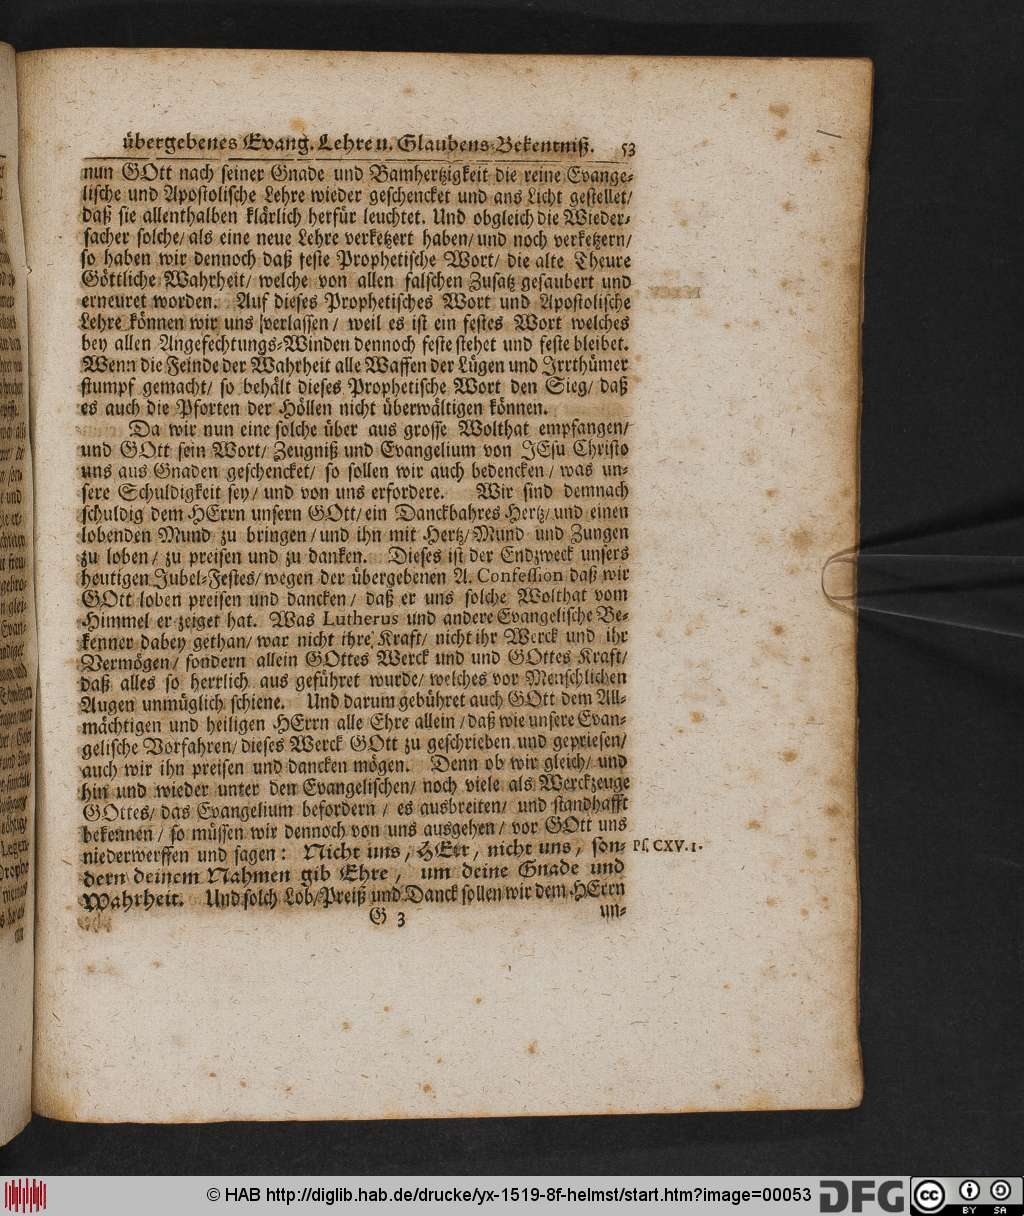 übergebenes Evang. Lehre u. Glaubens-Bekentniß. 53
nun GOtt nach seiner Gnade und Bamhertzigkeit die reine Evange-
lische und Apostolische Lehre wieder geschencket und ans Licht gestellet/
daß sie allenthalben klärlich herfür leuchtet. Und obgleich die Wieder-
sacher solche/ als eine neue Lehre verketzert haben/ und noch verketzern/
so haben wir dennoch daß feste Prophetische Wort/ die alte Theure
Göttliche Wahrheit/ welche von allen falschen Zusatz gesaubert und
erneuret worden. Auf dieses Prophetisches Wort und Apostolische
Lehre können wir uns verlassen/ weil es ist ein festes Wort welches
bey allen Angefechtungs-Winden dennoch feste stehet und feste bleibet.
Wenn die Feinde der Wahrheit alle Waffen der Lügen und Irrthümer
stumpf gemacht/ so behält dieses Prophetische Wort den Sieg/ daß
es auch die Pforten der Höllen nicht überwältigen können.
Da wir nun eine solche über aus grosse Wolthat empfangen/
und GOtt sein Wort/ Zeugniß und Evangelium von JEsu Christo
uns aus Gnaden geschencket/ so sollen wir auch bedencken/ was un-
sere Schuldigkeit sey/ und von uns erfordere. Wir sind demnach
schuldig dem HErrn unsern GOtt/ ein Danckbahres Hertz/ und einen
lobenden Mund zu bringen/ und ihn mit Hertz/ Mund und Zungen
zu loben/ zu preisen und zu danken. Dieses ist der Endzweck unsers
heutigen Jubel-Festes/ wegen der übergebenen A. Confession daß wir
GOtt loben preisen und dancken/ daß er uns solche Wolthat vom
Himmel er zeiget hat. Was Lutherus und andere Evangelische Be-
kenner dabey gethan/ war nicht ihre Kraft/ nicht ihr Werck und ihr
Vermögen/ sondern allein GOttes Werck und und GOttes Kraft/
daß alles so herrlich aus geführet wurde/ welches vor Menschlichen
Augen unmüglich schiene. Und darum gebühret auch GOtt dem All-
mächtigen und heiligen HErrn alle Ehre allein/ daß wie unsere Evan-
gelische Vorfahren/ dieses Werck GOtt zu geschrieben und gepriesen/
auch wir ihn preisen und dancken mögen. Denn ob wir gleich/ und
hin und wieder unter den Evangelischen/ noch viele als Werckzeuge
GOttes/ das Evangelium befordern/ es ausbreiten/ und standhafft
bekennen/ so müssen wir dennoch von uns ausgehen/ vor GOtt uns
niederwerffen und sagen: Nicht uns, HErr, nicht uns, son- Ps. CXV. 1.
dern deinem Nahmen gib Ehre, um deine Gnade und
Wahrheit. Und solch Lob/ Preiß und Danck sollen wir dem HErrn
G 3 un-
© HAB http://diglib.hab.de/drucke/yx-1519-8f-helmst/start.htm?image=00053
DFG
cc BY SA